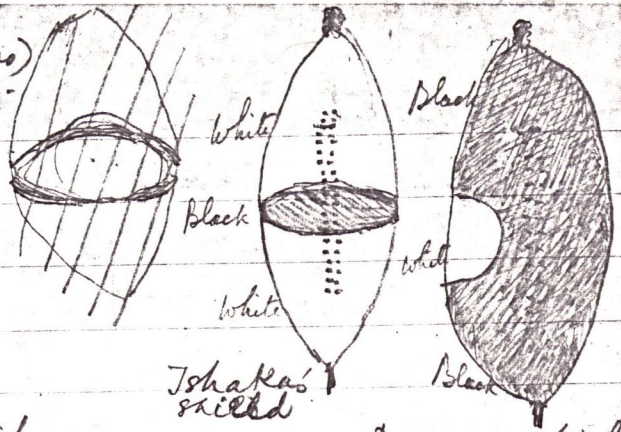 White
Black
White
Tshaka's
shield
Black
White
Black